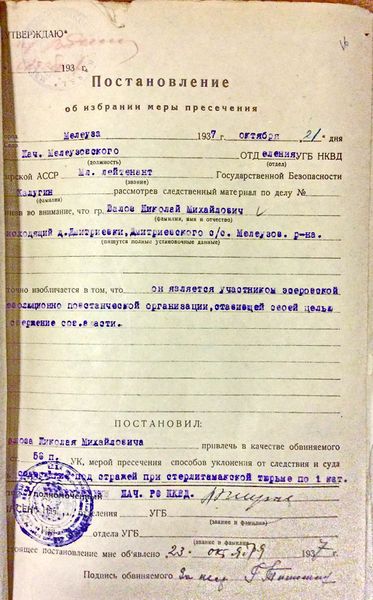 УТВЕРЖДАЮ"
193 г.
Постановление
об избрании меры пресечения
Мелеуза 1937 октября 21 дня
Нач. Мелеузовского ОТД еления УГБ НКВД
(должность) (отдел)
ирской АССР Мл. лейтенант Государственной Безопасности
(звание)
Калугин рассмотрев следственный материал по делу №
(фамилия)
иняв во внимание, что гр. Валов Николай Михайлович
(фамилия, имя и отчество)
оисходящий д.Дмитриевки, Дмитриевского с/с. Мелеузов. р-на.
(пишутся полные установочные данные)
точно изобличается в том, что он является участником эсеровской
волюционно повстанческой организации, ставящей своей целью
свержение сов.власти.
ПОСТАНОВИЛ:
алова Николая Михайловича привлечь в качестве обвиняемого
58 п. УК, мерой пресечения способов уклонения от следствия и суда
содержание под стражей при стерлитамакской тюрьме по 1 кат.
полномоченный НАЧ. РО НКВД.
еления УГБ
(звание и фамилия)
отдела УГБ
(звание и фамилия)
стоящее постановление мне об'явлено 23 октября 1937 г.
Подпись обвиняемого